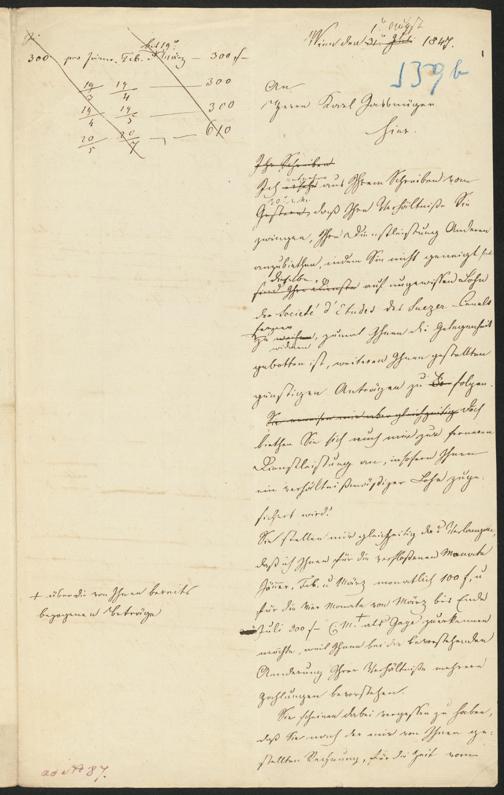 bis 19t
300 pro Jänner, Feb. & März — 300 f—
19/3 19/4 — 300
19/4 19/5 — 300
20/5 20/7 — 610
1t August
Wien den 31t Juli 1847.
139 b
An
Herrn Karl Gassmüger
hier.
Ihr Schreiben
Ich aus Ihrem Schreiben vom
Gestern, daß Ihre Verhältniße Sie
zwingen, Ihre Dienstleistung Anderen
anzubiethen, indem Sie nicht geneigt
dieselbe
sind Ihre Dienste auf ungewissen Lohn
der Societé d'Etudes des Suezer-Canals
ferner
zu widmen, zumal Ihnen die Gelegenheit
gebothen ist, weiteren Ihnen gestellten
günstigen Anträgen zu folgen.
Doch
biethen Sie sich auch mir zur ferneren
Dienstleistung an, insofern Ihnen
ein verhältnißmäßiger Lohn zuge-
sichert wird.
Sie stellen mir gleichzeitig das Verlangen,
daß ich Ihnen für die verfloßenen Monate
Jänner, Feb. u März monatlich 100 f, u
für die vier Monate von März bis Ende
Juli 300 f— C.M.+ als Gage zuerkennen
möchte, weil Ihnen bei der bevorstehenden
Aenderung Ihrer Verhältniße mehrere
Zahlungen bevorstehen.
Sie scheinen dabei vergessen zu haben,
daß Sie nach der mir von Ihnen ge-
stellten Rechnung, für die Zeit vom
+ über die von Ihnen bereits
bezogenen Beträge
ad No 87.